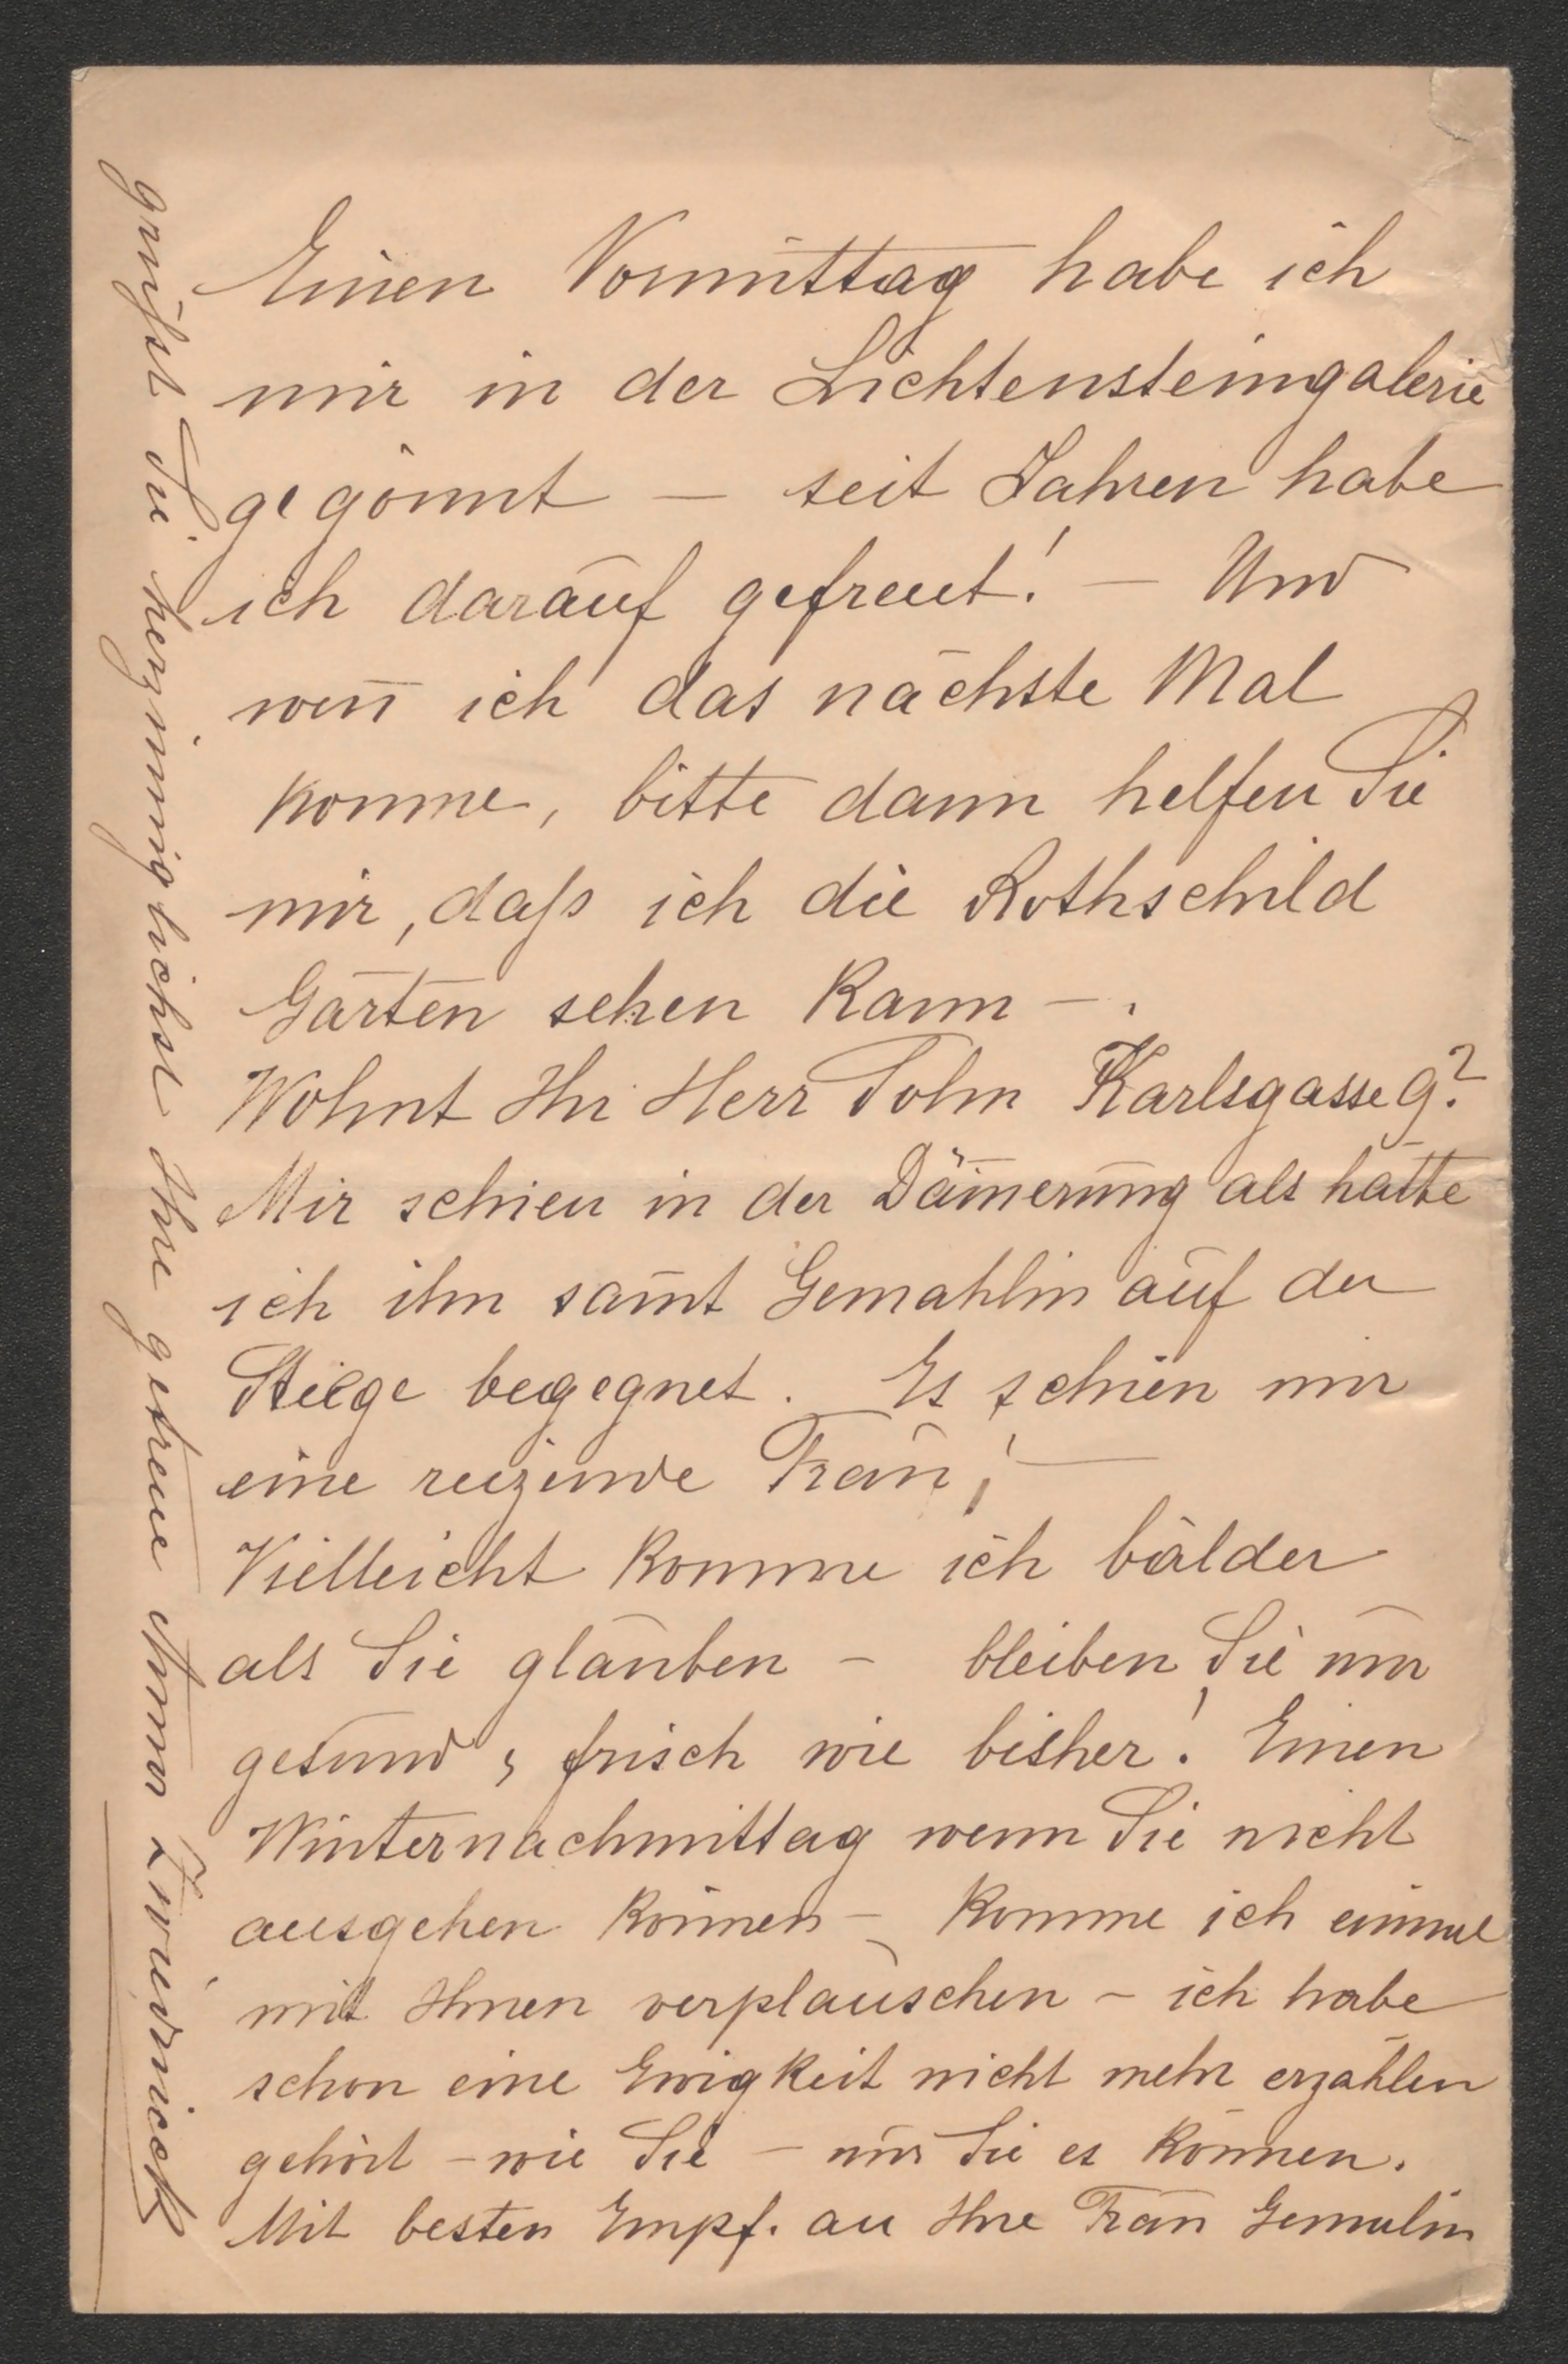 Einen Vormittag habe ich
mir in der Lichtensteingalerie
gegönnt — seit Jahren habe
ich darauf gefreut! — Und
weñ ich das nächste Mal
komme, bitte dann helfen Sie
mir, daſs ich die Rothschild
Gärten sehen kann —.
Wohnt Ihr Herr Sohn Karlsgasse 9?
Mir schien in der Däm̄erung als hätte
ich ihn sam̄t Gemahlin auf der
Stiege begegnet. Es schien mir
eine reizende Frau! —
Vielleicht komme ich bälder
als Sie glauben — bleiben Sie nur
gesund, frisch wie bisher! Einen
Winternachmittag wenn Sie nicht
ausgehen können — komme ich einmal
mit Ihnen verplauschen — ich habe
schon eine Ewigkeit nicht mehr erzählen
gehört — wie Sie — nur Sie es können.
Mit besten Empf. an Ihre Frau Gemalin
grüßst Sie herzinniglichst Ihre getreue Zwiedinick